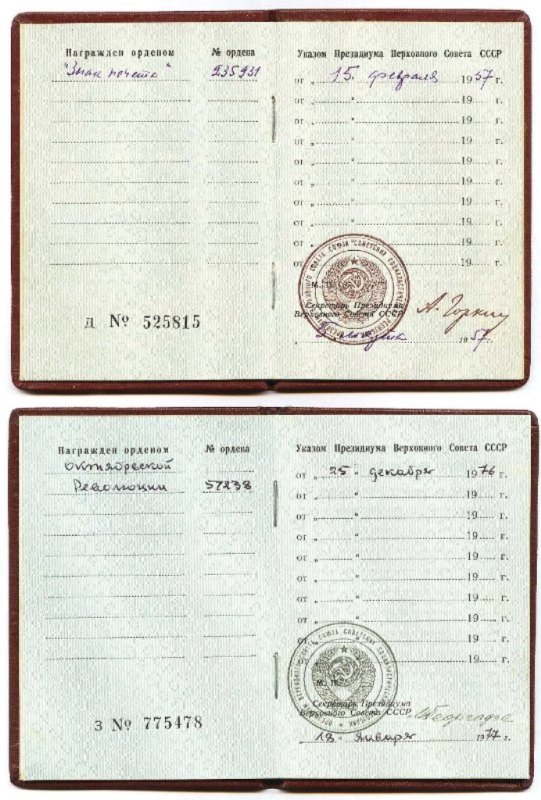 Награжден орденом № ордена Указом Президиума Верховного Совета СССР
"Знак почета" 235931 от „ 15 " февраля 1957 г.
от „ " 19 г.
от „ " 19 г.
от „ " 19 г.
от „ " 19 г.
от „ " 19 г.
от „ " 19 г.
от „ " 19 г.
от „ " 19 г.
от „ " 19 г.
М. П.
Секретарь Президиума
Верховного Совета СССР А. Горкин
Д № 525815
1957 г.
Награжден орденом № ордена Указом Президиума Верховного Совета СССР
Октябрьской
Революции 57238 от „ 25 " декабря 1976 г.
от „ " 19 г.
от „ " 19 г.
от „ " 19 г.
от „ " 19 г.
от „ " 19 г.
от „ " 19 г.
от „ " 19 г.
от „ " 19 г.
от „ " 19 г.
М. П.
Секретарь Президиума
Верховного Совета СССР
З № 775478
18 января 1977 г.